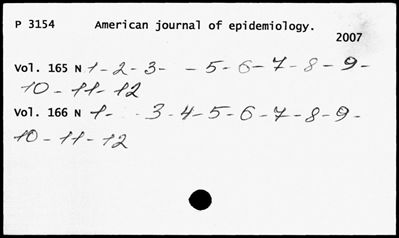 P 3154 American journal of epidemiology.
2007
Vol. 165 N 1-2-3- -5-6-7-8-9-
10-11-12
Vol. 166 N 1- 3-4-5-6-7-8-9-
10-11-12